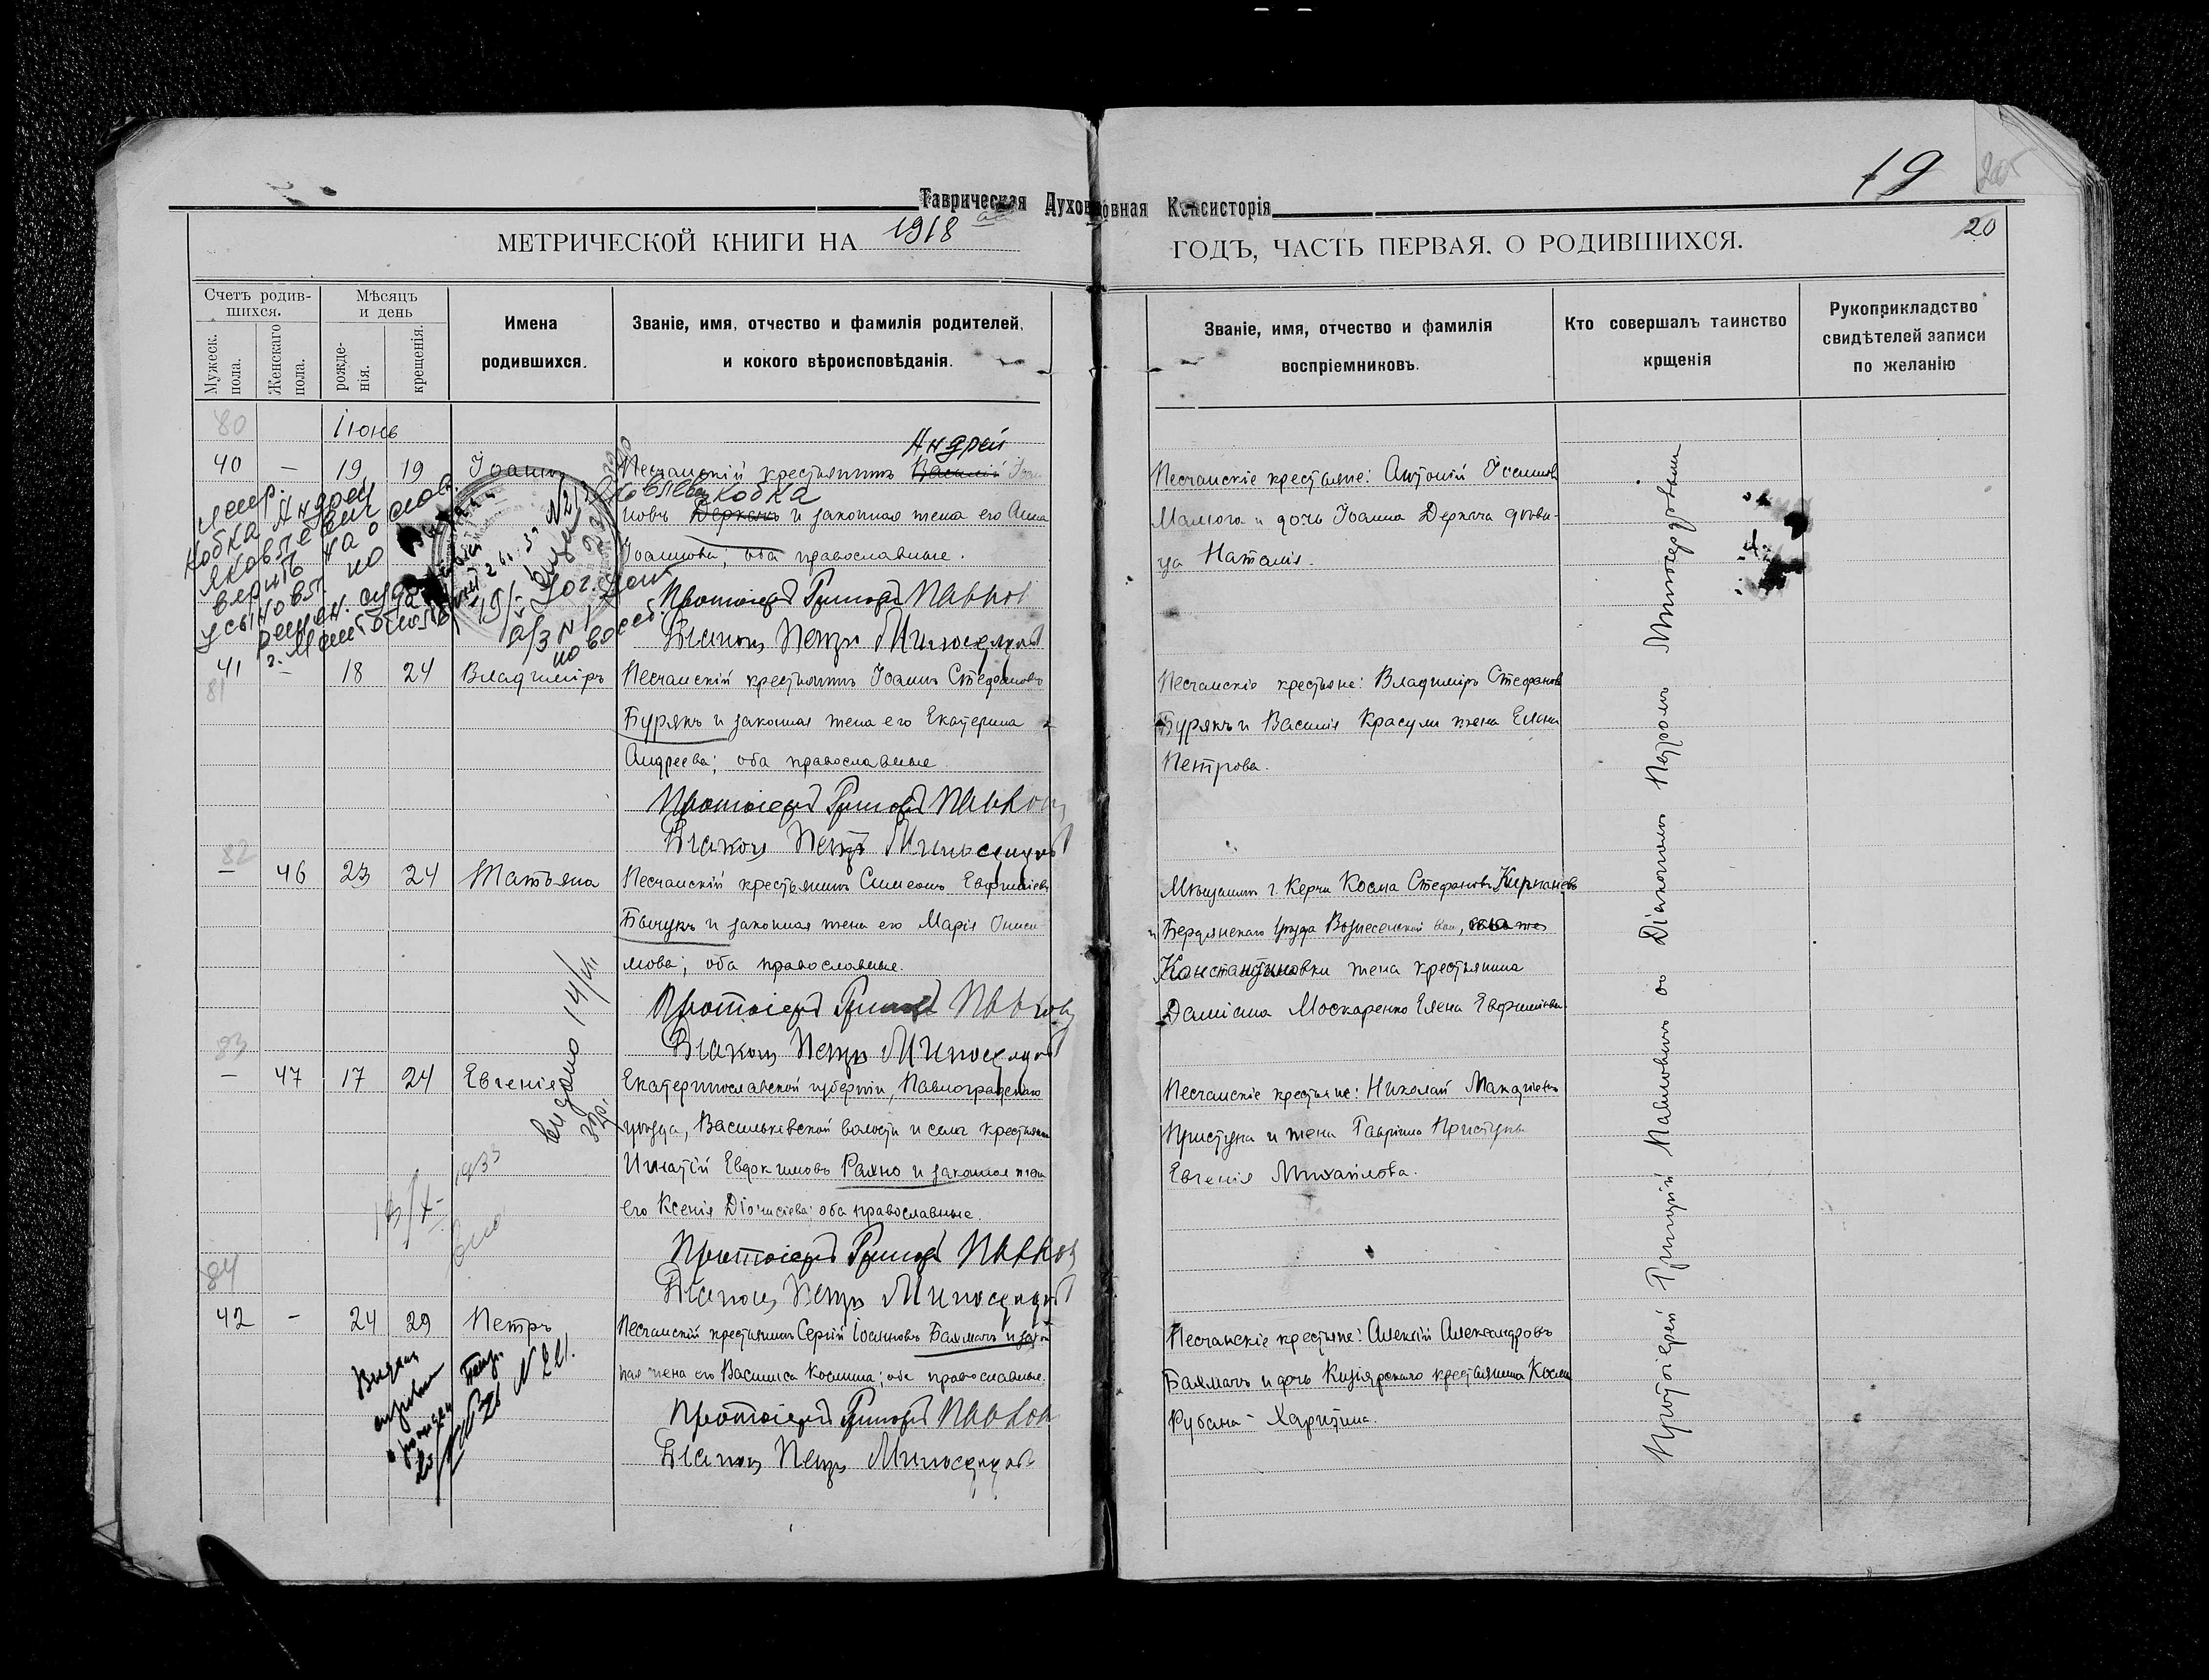 19
20
Таврическая Духовная Консисторія
МЕТРИЧЕСКОЙ КНИГИ НА 1918
ГОДЪ, ЧАСТЬ ПЕРВАЯ. О РОДИВШИХСЯ.
Счетъ родив-
шихся.
Мужеск.
пола.
Женскаго
пола.
Мѣсяцъ
и день
рожде-
нія.
крещенія.
Имена
родившихся.
Званіе, имя, отчество и фамилія родителей,
и кокого вѣроисповѣданія.
Званіе, имя, отчество и фамилія
воспріемниковъ.
Кто совершалъ таинство
крщенія
Рукоприкладство
свидѣтелей записи
по желанію
80
Іюнь
Андрей
40 — 19 19 Іоаннъ
Песчанскій крестьянинъ Василій
Кобка
новъ Деркачъ и законная жена его Анна
Іоаннова; оба православные.
Протоіерей Григорій Павлов
Діаконъ Петръ Милосердовъ
Песчанскіе крестьяне: Антоній
Малюга и дочь Іоанна Деркача дѣви-
ца Наталія.
Кобка Андрей
41 — 18 24 Владиміръ
81
Песчанскій крестьянинъ Іоаннъ Стефановъ
Бурякъ и законная жена его Екатерина
Андреева; оба православные.
Протоіерей Григорій Павлов
Діаконъ Петръ Милосердовъ
Песчанскіе крестьяне: Владиміръ Стефановъ
Бурякъ и Василія Красули жена Елена
Петрова.
82
— 46 23 24 Татьяна
Песчанскій крестьянинъ Симеонъ Евфиміевъ
Бычукъ и законная жена его МаріяОниси
мова; оба православные.
Протоіерей Григорій Павлов
Діаконъ Петръ Милосердовъ
Мѣщанинъ г. Керчи Косма Стефановъ
и Бердянскаго уѣзда Вознесенской вол.,
Константиновки жена крестьянина
Даміана Москаренко Елена Евфиміева
83
— 47 17 24 Евгенія
Выдано 14/
Екатеринославской губерніи, Павлоградскаго
уѣзда, Васильковской волости и села крестьянинъ
Игнатій Евдокимовъ Рахно и законная жена
его Ксенія Діонисіева; оба православные.
Протоіерей Григорій Павлов
Діаконъ Петръ Милосердовъ
Песчанскіе крестьяне: Николай
Приступа и жена Гавріила Приступы
Евгенія Михайлова.
1933
84
42 — 24 29 Петръ
Песчанскій крестьянинъ Сергій Іоанновъ Бахмачъ и закон
ная жена его Василиса Космина; оба православные.
Протоіерей Григорій Павлов
Діаконъ Петръ Милосердовъ
Песчанскіе крестьяне: Алексій Александровъ
Бахмачъ и дочь крестьянина Космы
Рубана - Харитина.
Протоіерей Григорій Павловъ со Діакономъ Петромъ Милосердовымъ